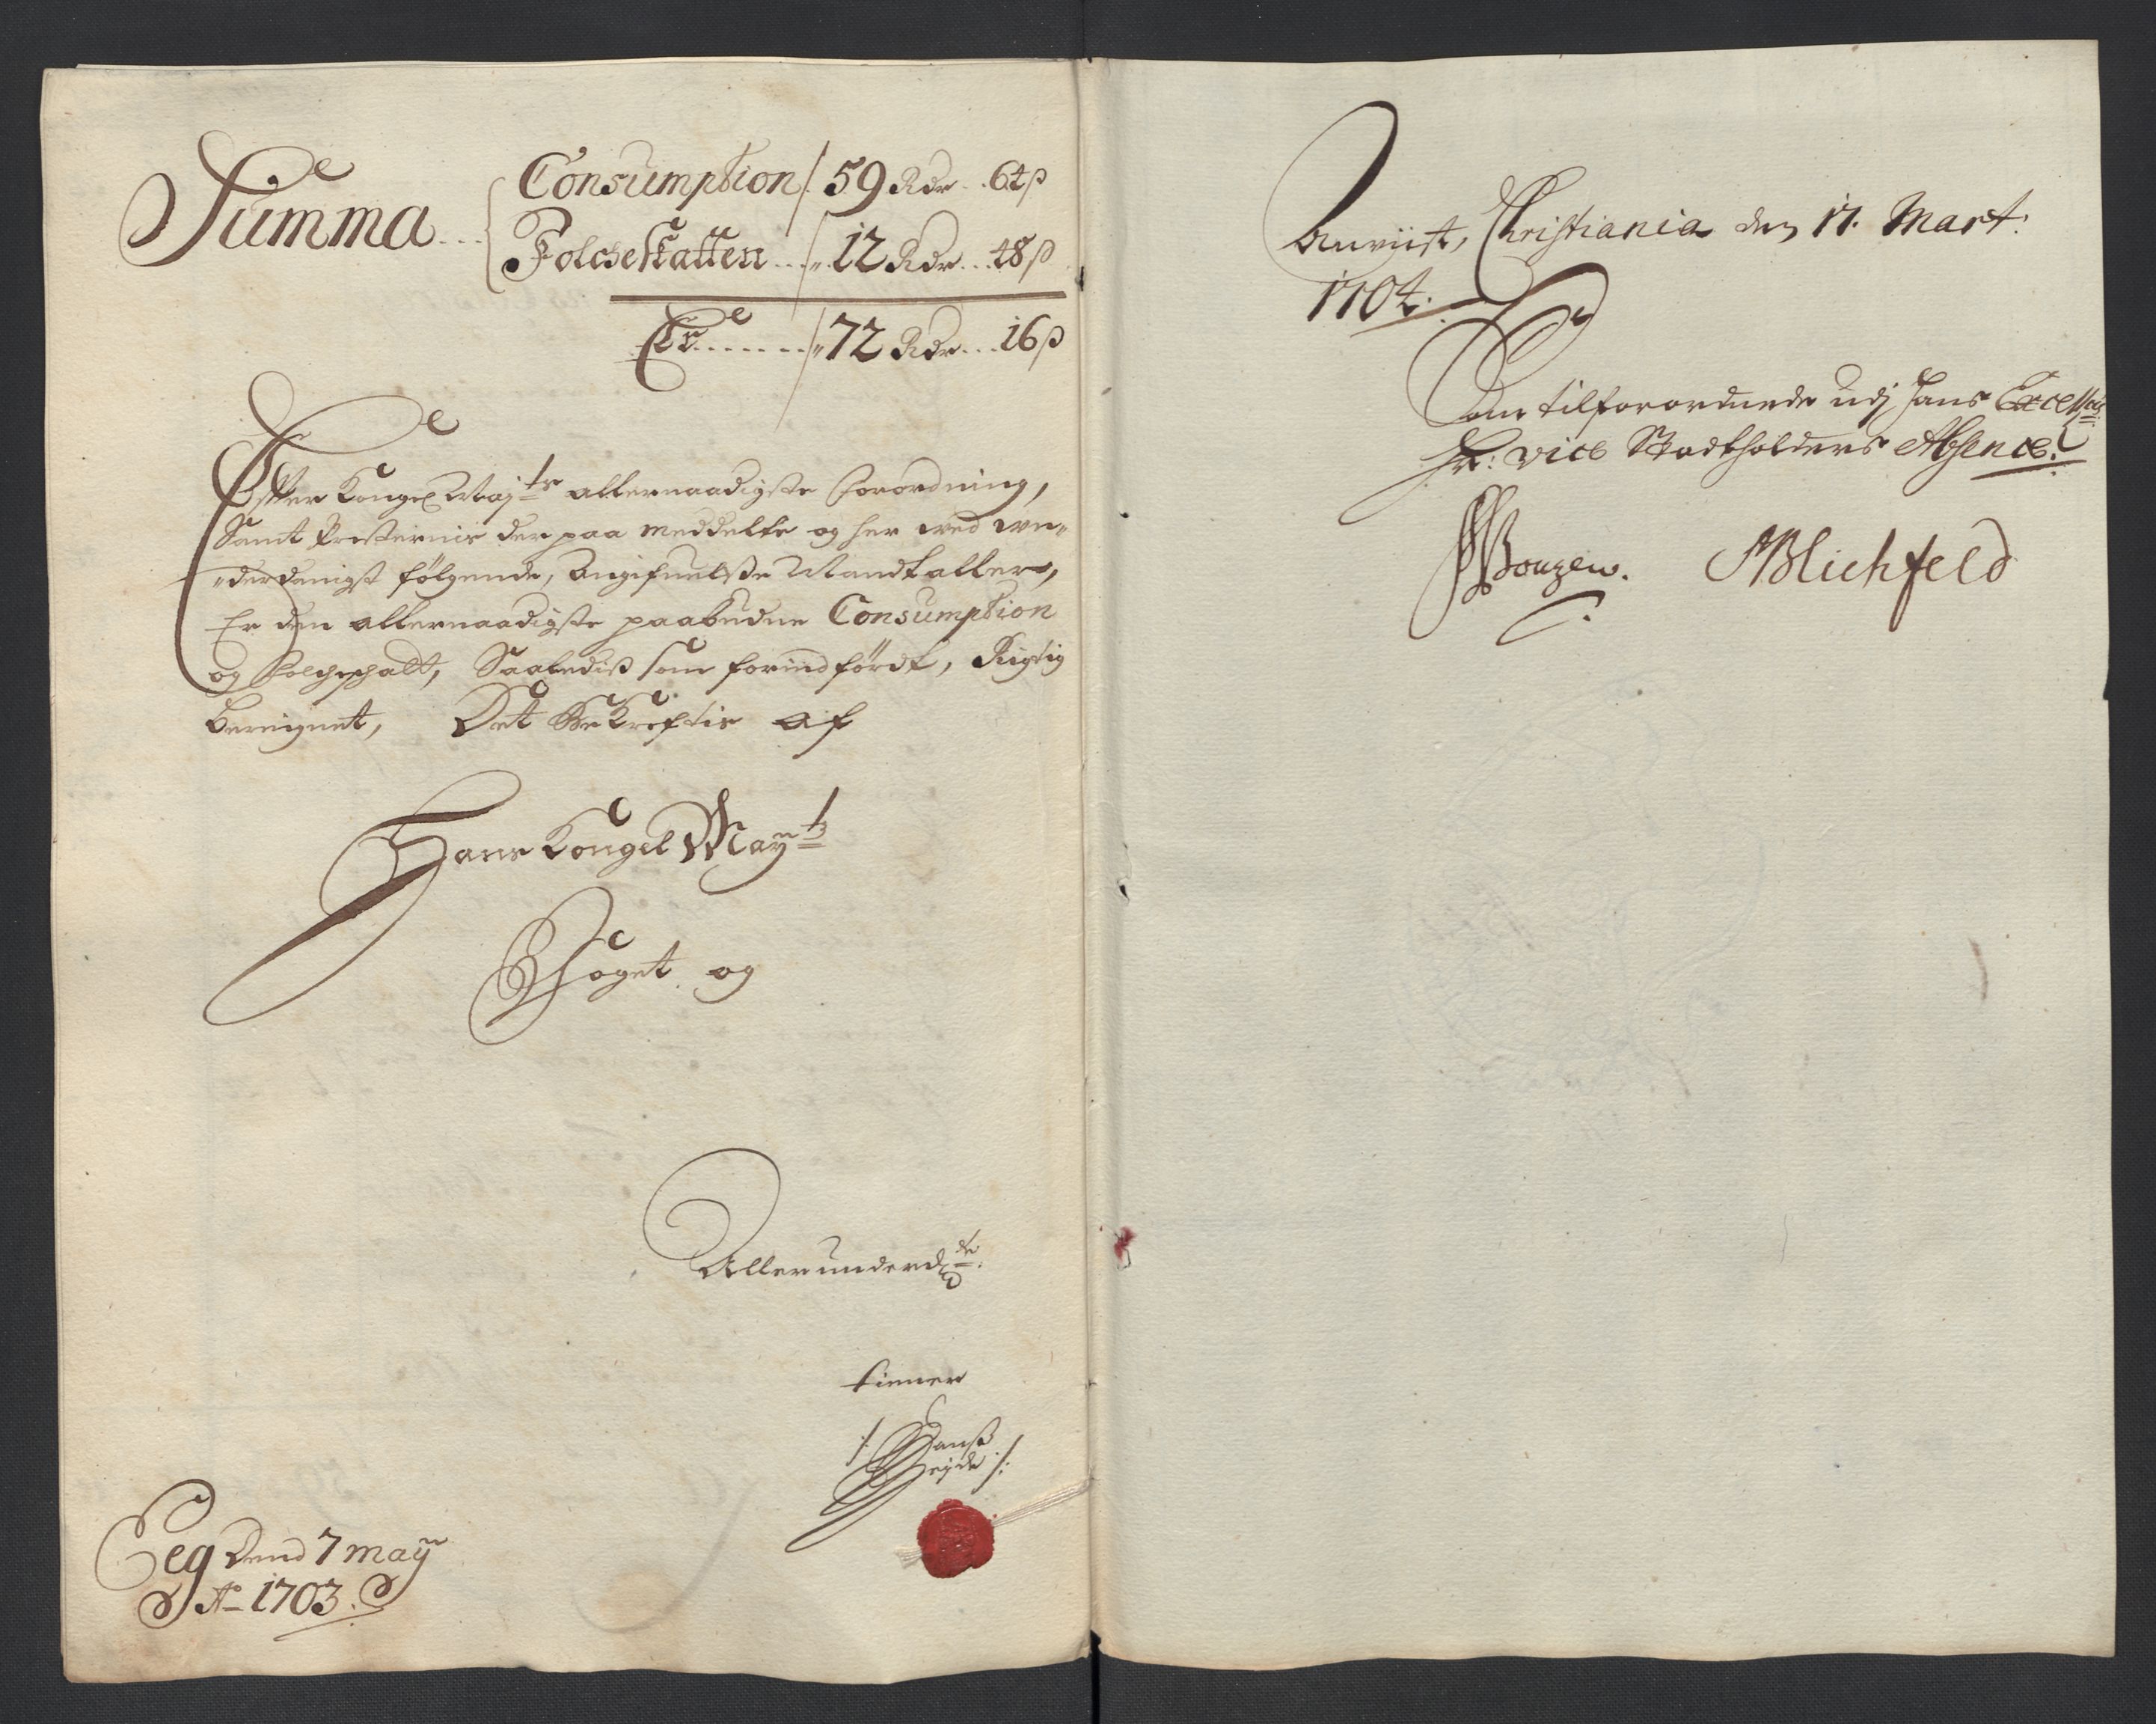 Summa... Consumption/. 59 Rdr. .64ß
Folcheskatten..../. 12 Rdr...48ß
Er......./. 72 Rdr...16ß
Efter Kongel Maj:ts allernaadigste Forordning,
Samt Presternis der paa meddelte og her ved un„
„derdanigst følgende, Angifuelse Mandtaller,
Er den allernaadigste paabudne Consumption
og Folcheschatt, Saaledis som forind førdt, Rigtig
beregnet, Det Bekreftis af
Hans Kongel May:ts
Foget og
Allerunderd:te
tiener
/: Hanß
Heyde :/
Eeg Dend 7 maÿ
Ao 1703.
Anviist, Christiania den 17. Mart:
1704.
Som tilforordnede udj Hans Excell:ces
Hr: Vice Stadtholders Absence.
Blichfeld